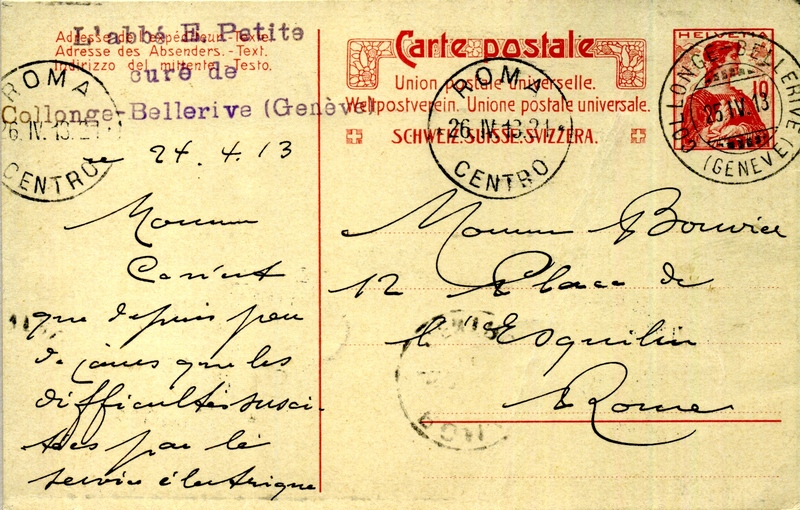 L'abbé E. Petite
Adresse de l'expéditeur.-Texte.
Adresse des Absenders.-Text.
Indirizzo del mittente.-Testo.
curé de
Collonge-Bellerive (Genève)
ROMA
26.IV.13.21
CENTRO
le 24.4.13
Monsieur
Ce n'est
que depuis peu
de jours que les
difficultés susci-
tées par le
service électrique
Carte postale
Union postale universelle.
Weltpostverein. Unione postale universale.
SCHWEIZ.SUISSE.SVIZZERA.
ROMA
26.IV.13.21
CENTRO
HELVETIA
10
COLLONGE-BELLERIVE
25.IV.13
(GENÈVE)
Monsieur Bouvier
12 Place de
l'Esquilin
à Rome